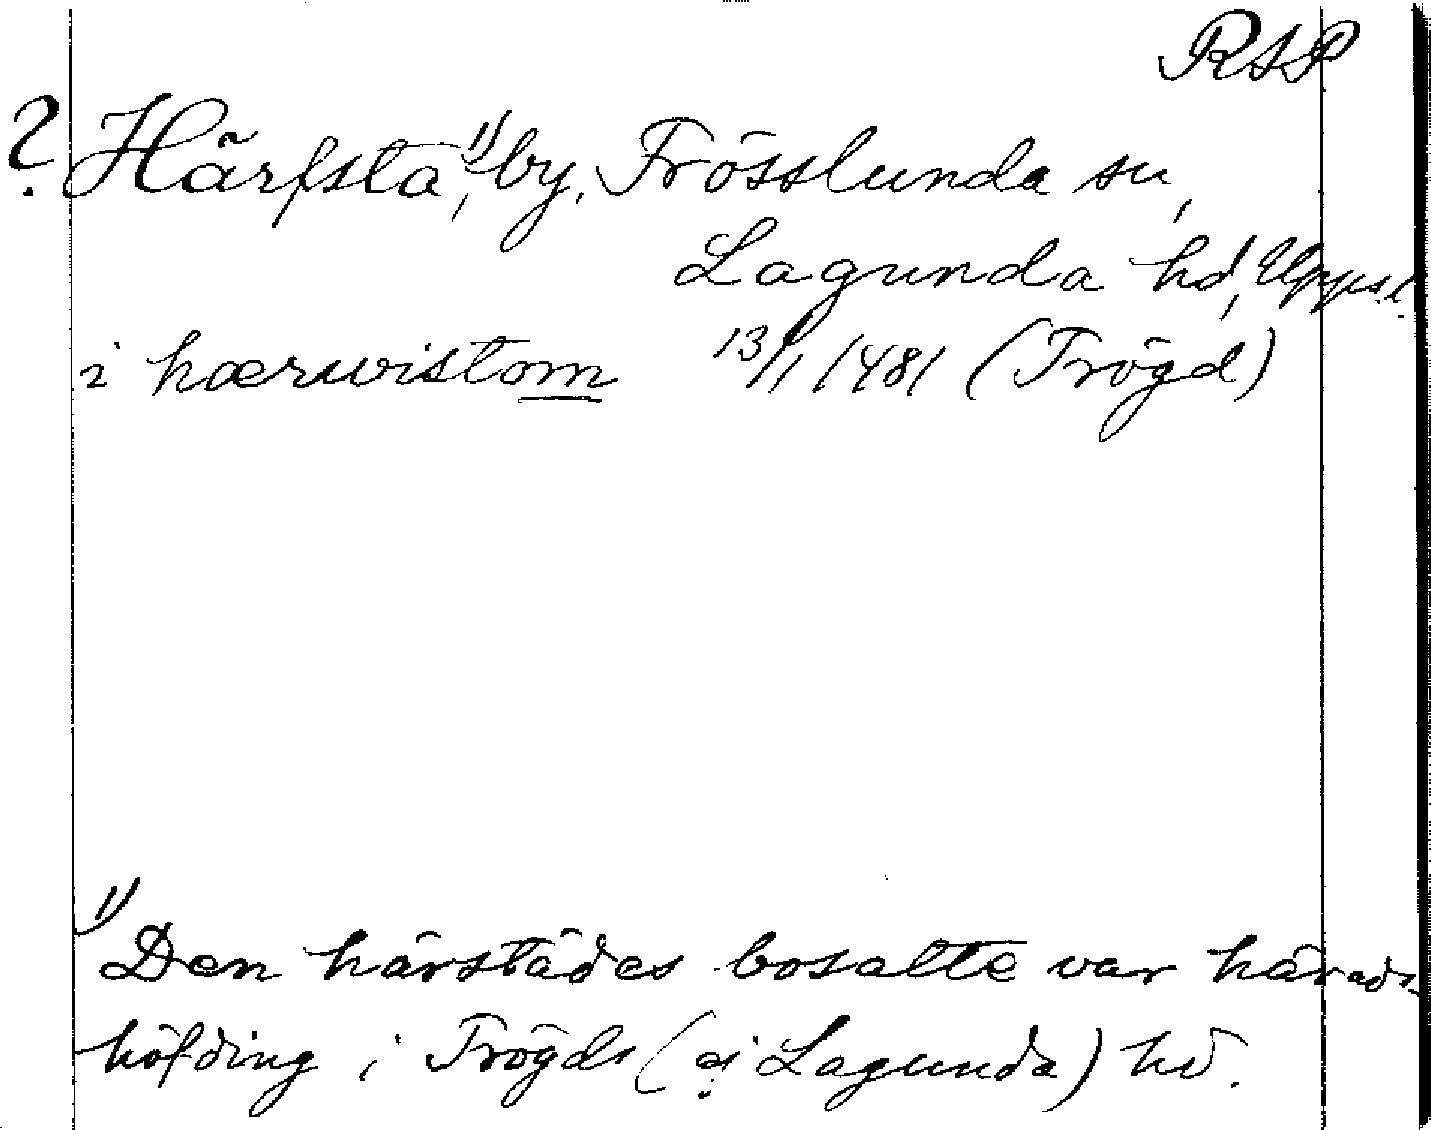 RSP
? Härfsta,¹⁾ by, Frösslunda sn,
Lagunda hd, Upps. l.
i hærwistom 13/1 1481 (Trögd)
1) Den härstädes bosatte var härads-
höfding i Trögds (ej Lagunda) hd.